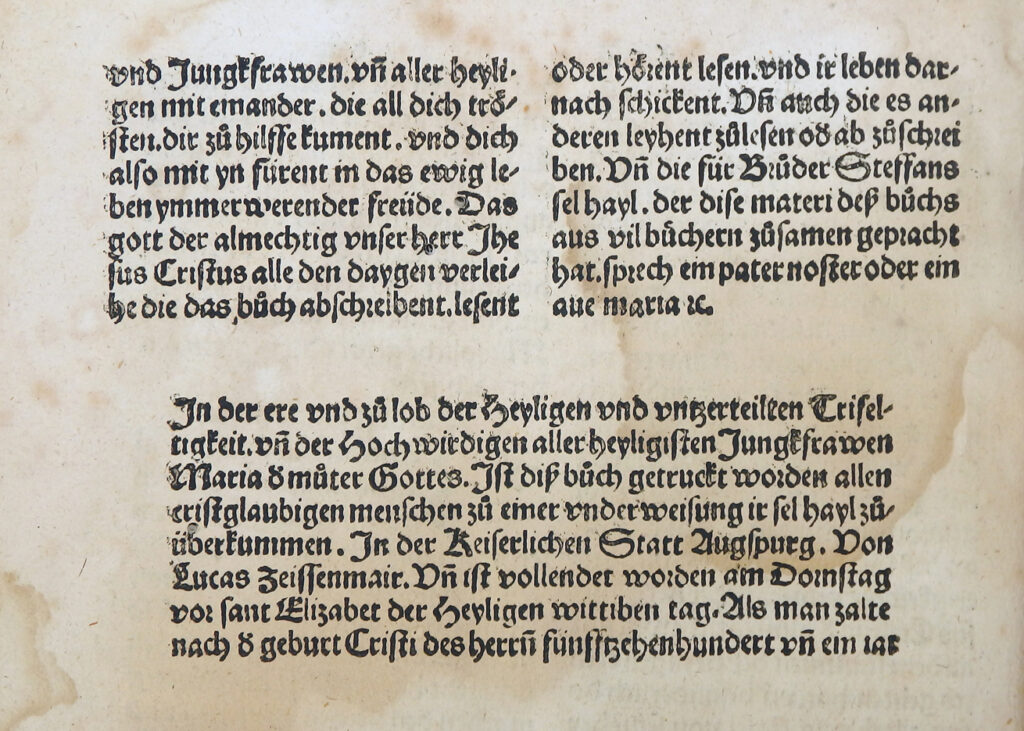 vnd Jungkfrawen. vn̄ aller heyli-
gen mit einander. die all dich trö-
sten. dir zů hilffe kument. vnd dich
also mit yn fürent in das ewig le-
ben ymmer werender freüde. Das
gott der almechtig vnser herr Jhe
sus Cristus alle den daygen verlei-
he die das bůch abschreibent. lesent
oder hörent lesen. vnd ir leben dar-
nach schickent. Vn̄ auch die es an-
deren leyhent zůlesen od̕ ab zůschrei
ben. Vn̄ die für Brůder Steffans
sel hayl. der dise materi deß bůchs
aus vil büchern zůsamen gepracht
hat. sprech ein pater noster oder ein
aue maria ꝛc.
In der ere vnd zů lob der Heyligen vnd vntzerteilten Trifel-
tigkeit. vn̄ der Hochwirdigen aller heyligisten Jungkfrawen
Maria d̕ můter Gottes. Ist diß bůch getruckt worden allen
cristglaubigen menschen zů einer vnderweisung ir sel hayl zů-
überkummen. In der Keiserlichen Statt Augspurg. Von
Lucas Zeissenmair. Vn̄ ist vollendet worden am Dornstag
vor sant Elizabet der Heyligen wittiben tag. Als man zalte
nach d̕ geburt Cristi des herrn̄ fünfftzehenhundert vn̄ ein iar